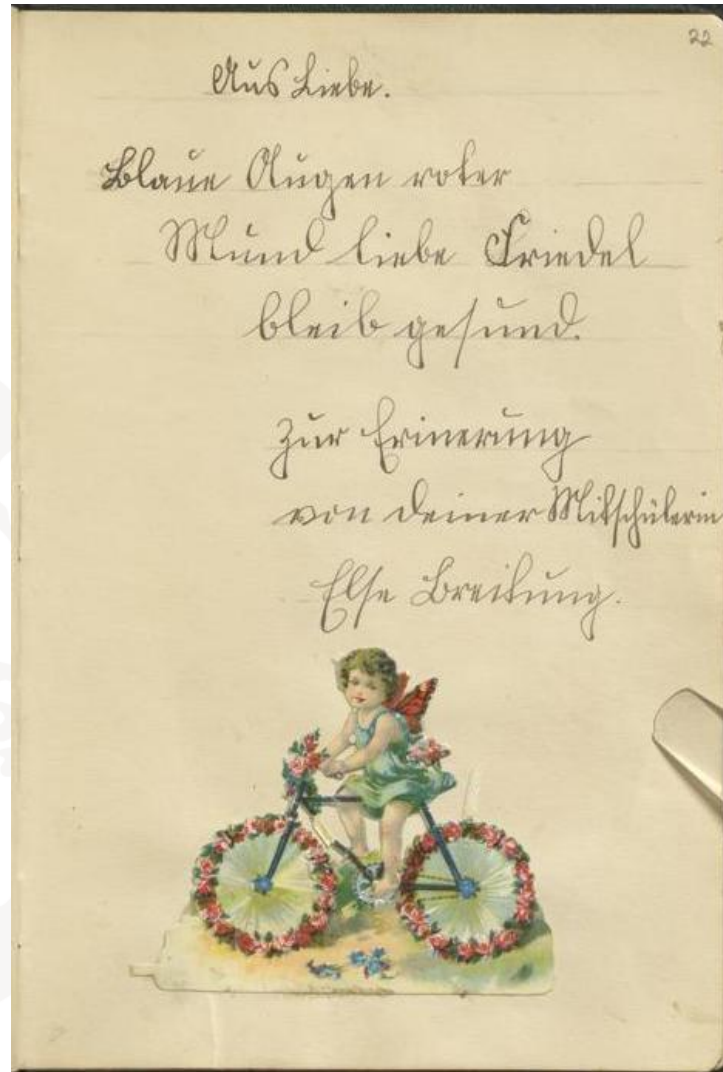 22
Aus Liebe.
Blaue Augen roter
Mund liebe Friedel
bleib gesund.
Zur Erinerung
von deiner Mitschülerin
Else Breitung.